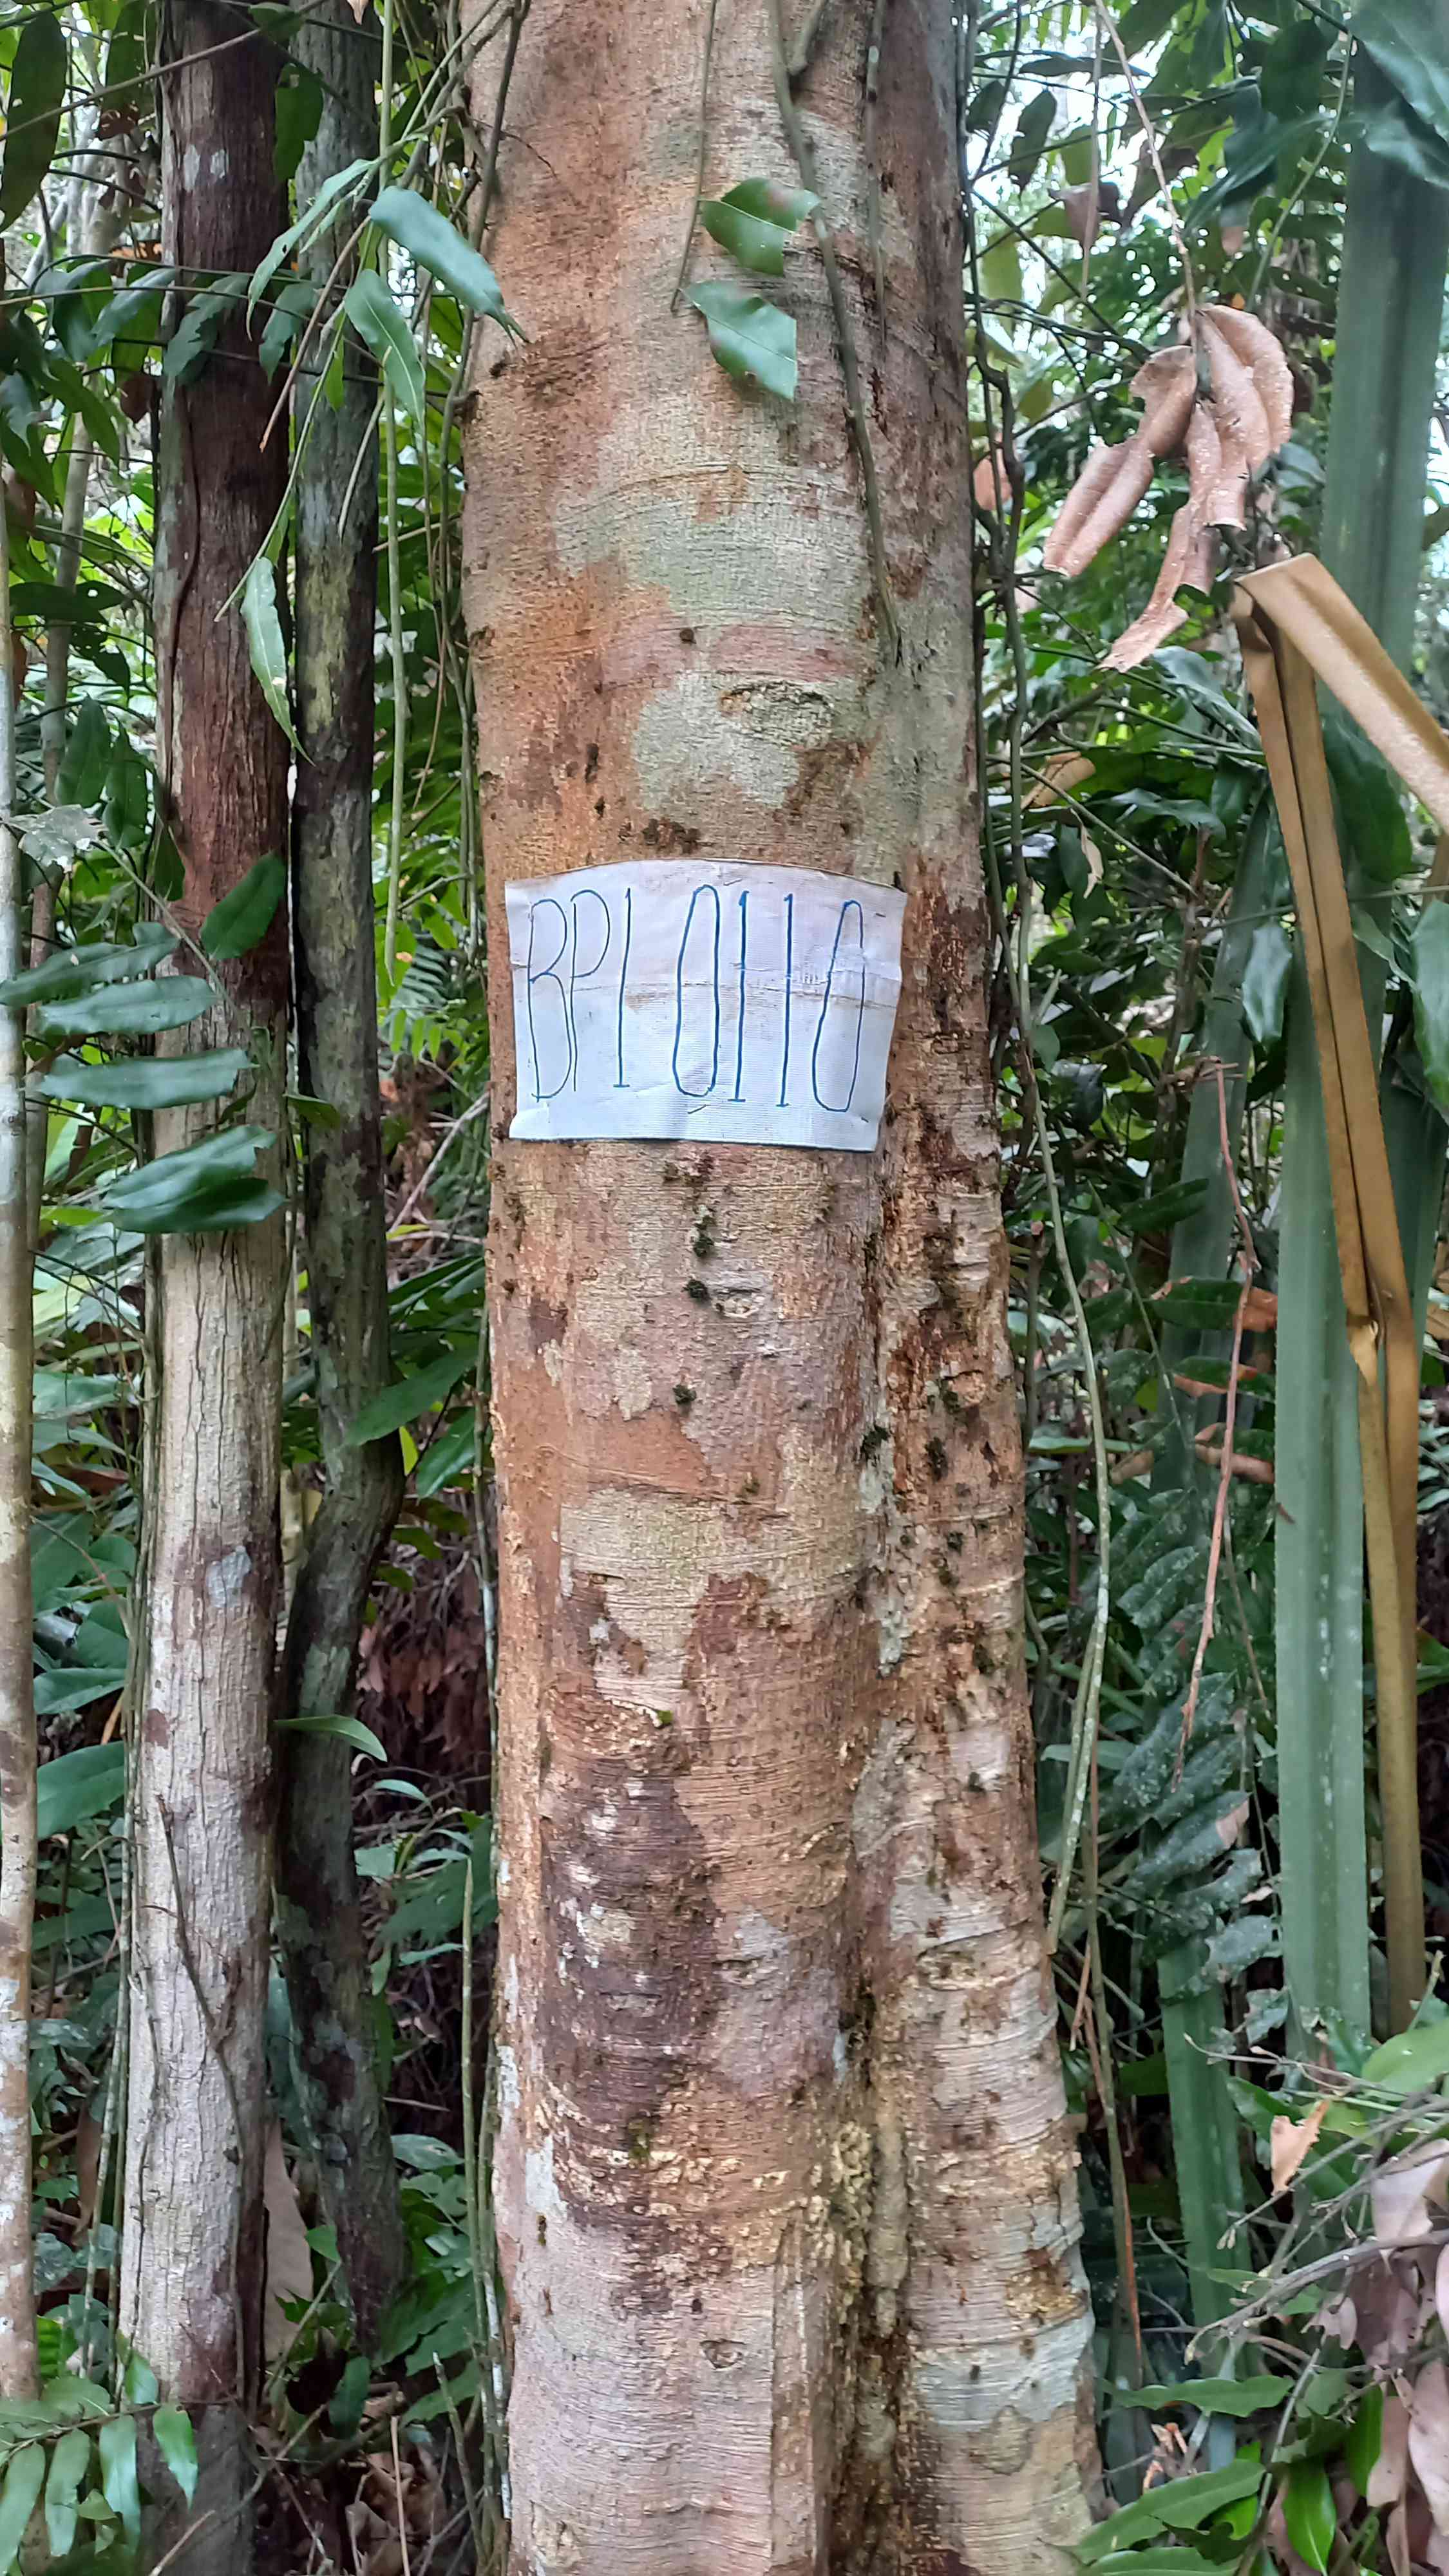 BP1 0110